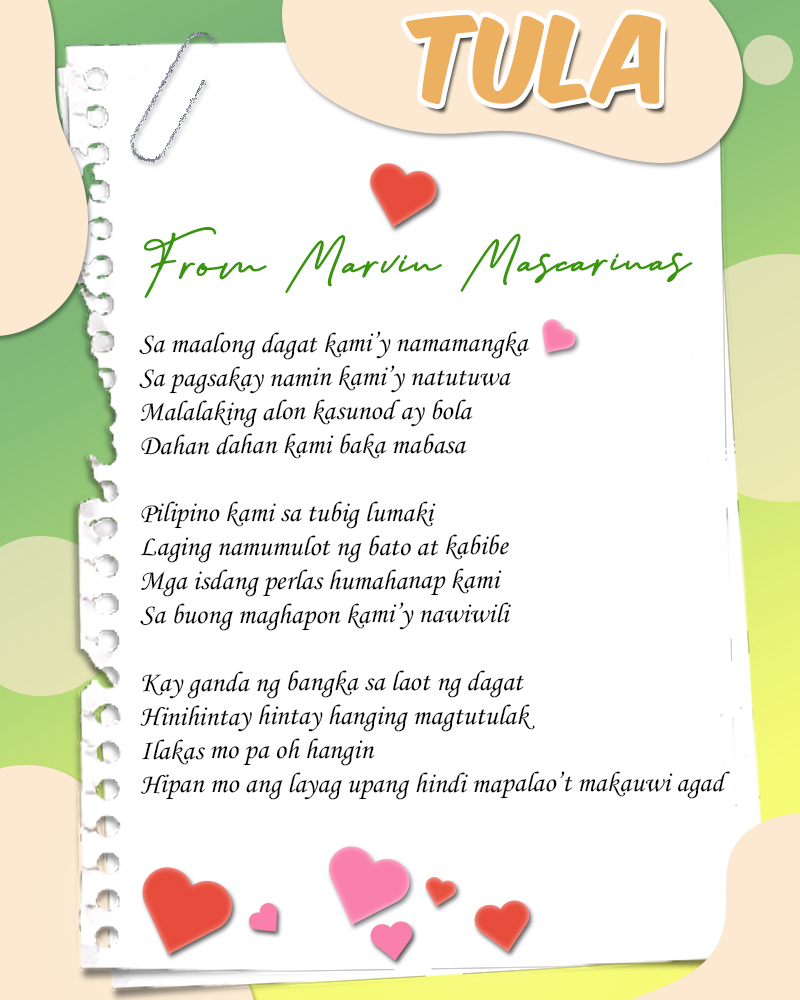 TULA
From Marvin Mascarinas
Sa maalong dagat kami'y namamangka
Sa pagsakay namin kami'y natutuwa
Malalaking alon kasunod ay bola
Dahan dahan kami baka mabasa
Pilipino kami sa tubig lumaki
Laging namumulot ng bato at kabibe
Mga isdang perlas humahanap kami
Sa buong maghapon kami'y nawiwili
Kay ganda ng bangka sa laot ng dagat
Hinihintay hintay hanging magtutulak
Ilakas mo pa oh hangin
Hipan mo ang layag upang hindi mapalao't makauwi agad